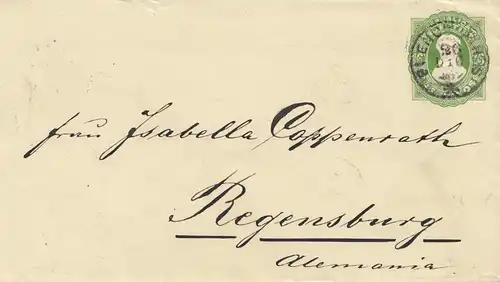 Frau Isabella Coppenrath
Regensburg
Alemania